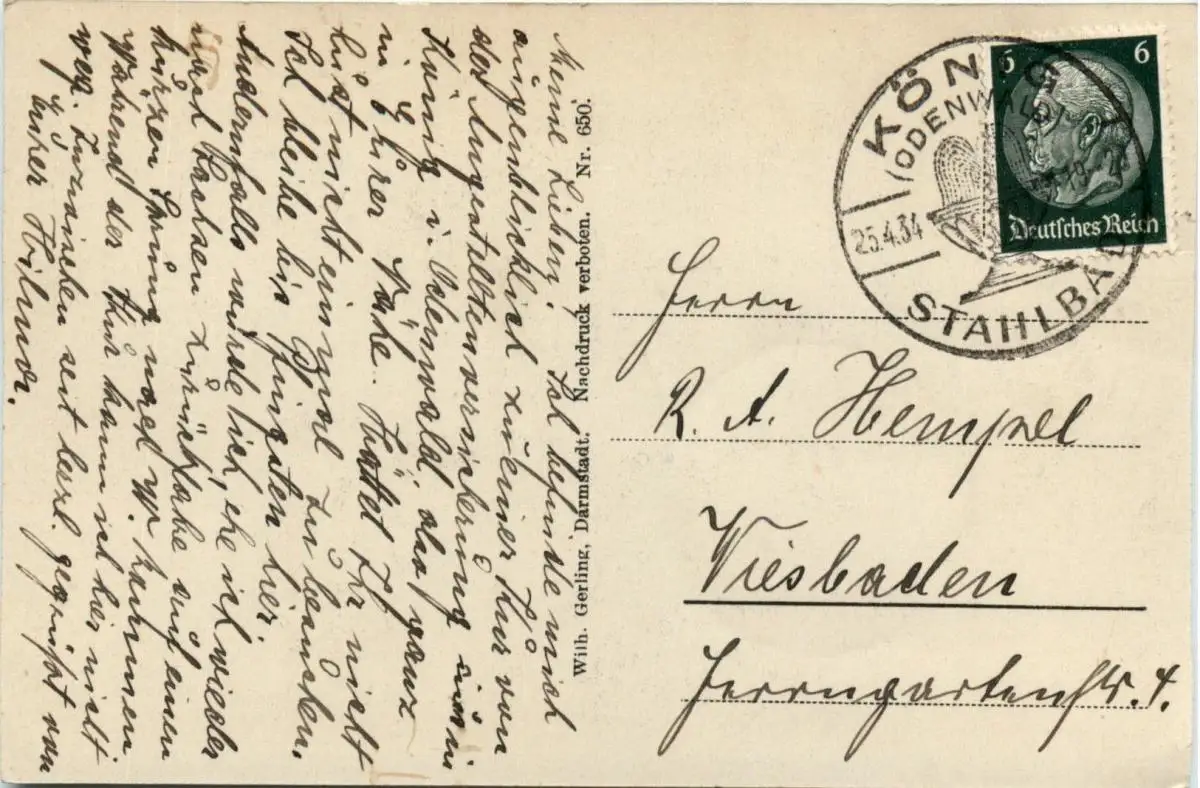 Meine Lieben! Ich befinde mich
augenblicklich zu einer Kur von
der Angestelltenversicherung in
König i. Odenwald, also ganz
in Ihrer Nähe. Hättet Ihr nicht
Lust mich einmal zu besuchen.
Ich bleibe bis Pfingsten hier.
Andernfalls würde ich, ehe ich wieder
nach Sachsen zurückfahre auf einen
kurzen Sprung nach W. kommen.
Während der Kur kann ich hier nicht
weg. Inzwischen seit herzl. gegrüßt von
Eurer Hilma.
Wilh. Gerling, Darmstadt. Nachdruck verboten. Nr. 650.
KÖNIG
(ODENWALD)
25.4.34
STAHLBAD
6 6
Deutsches Reich
Herrn
R. A. Hempel
Wiesbaden
Herrngartenstr. 4.